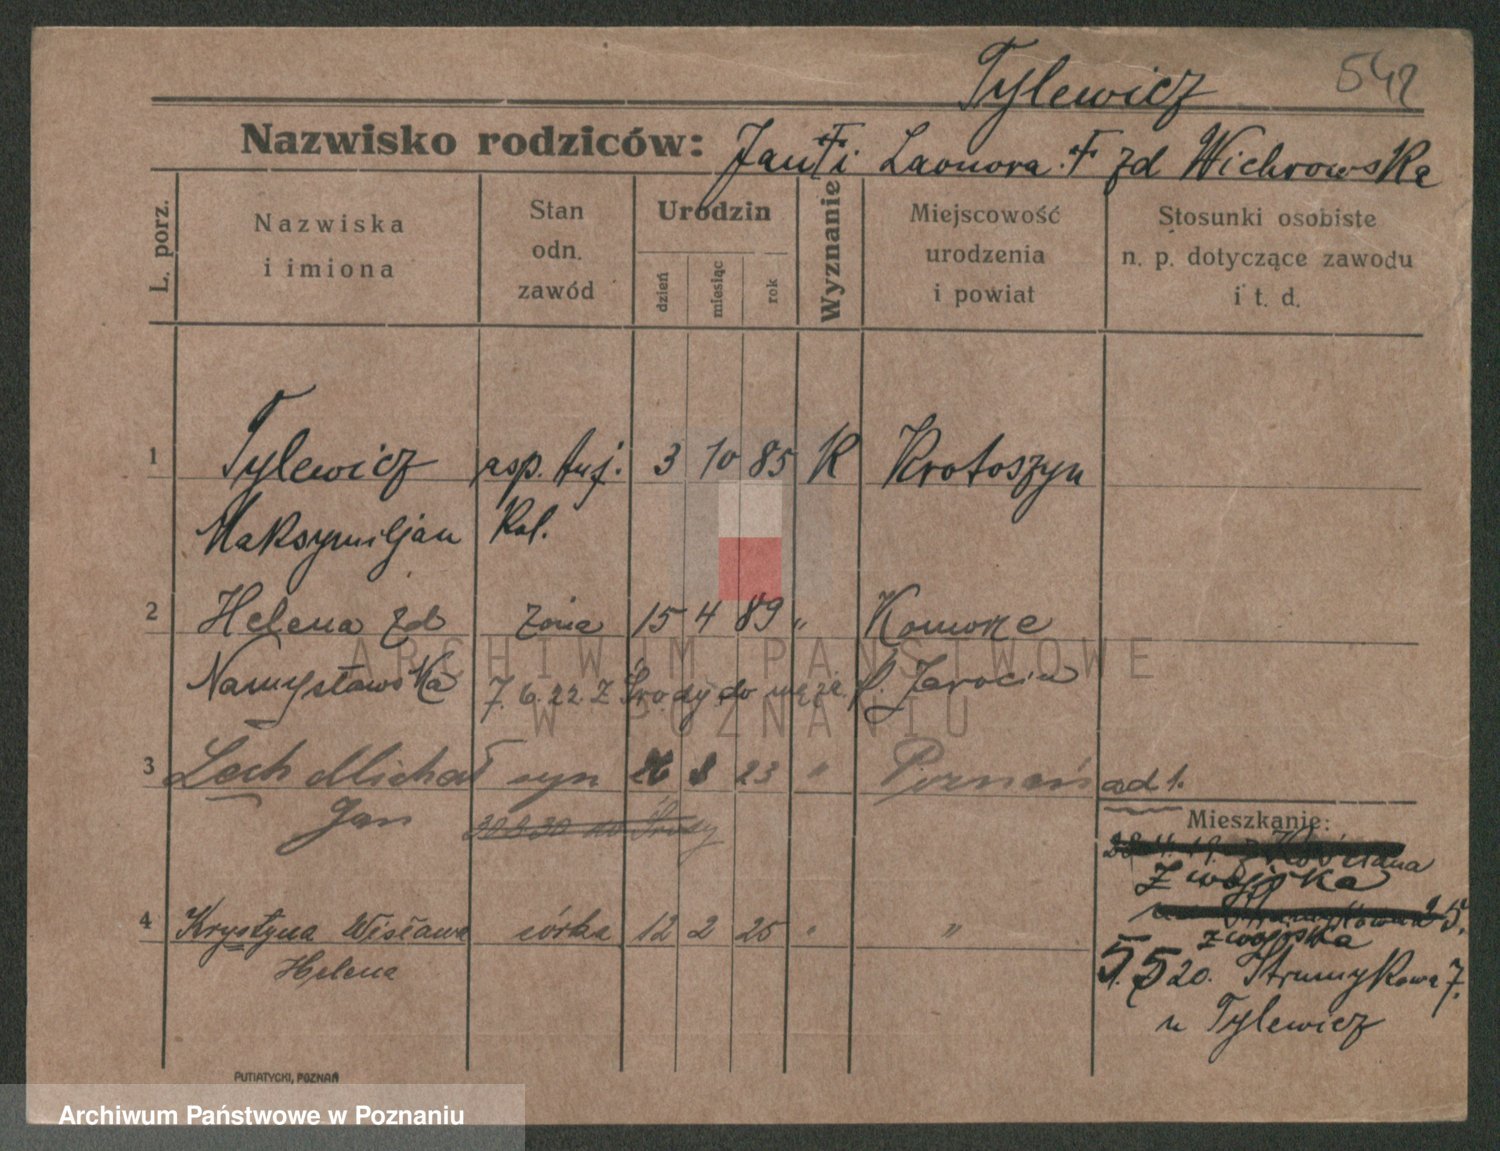 Tylewicz 542
Nazwisko rodziców: Jan † i Laonora † zd Wichrowska
L. porz.
Nazwiska i imiona
Stan odn. zawód
Urodzin
dzień
miesiąc
rok
Wyznanie
Miejscowość urodzenia i powiat
Stosunki osobiste n. p. dotyczące zawodu i t. d.
1 Tylewicz asp. 3 10 85 K Krotoszyn
Maksymiljan Kol.
2 Helena zd żona 15 4 89 „ Komorze
Namysłowska 7.6.22. z Środy do męża. p. Jarocin
3 Lech Michał syn 26 8 23 „ Poznań ad 1.
Jan 30 do Środy
Mieszkanie:
z wojska
4 Krystyna Wisława córka 12 2 25 „ „
z wojska
Helena
5.5 20. Strumykowa 7.
u Tylewicz
PUTIATYCKI, POZNAŃ
ARCHIWUM PAŃSTWOWE
W POZNANIU
Archiwum Państwowe w Poznaniu